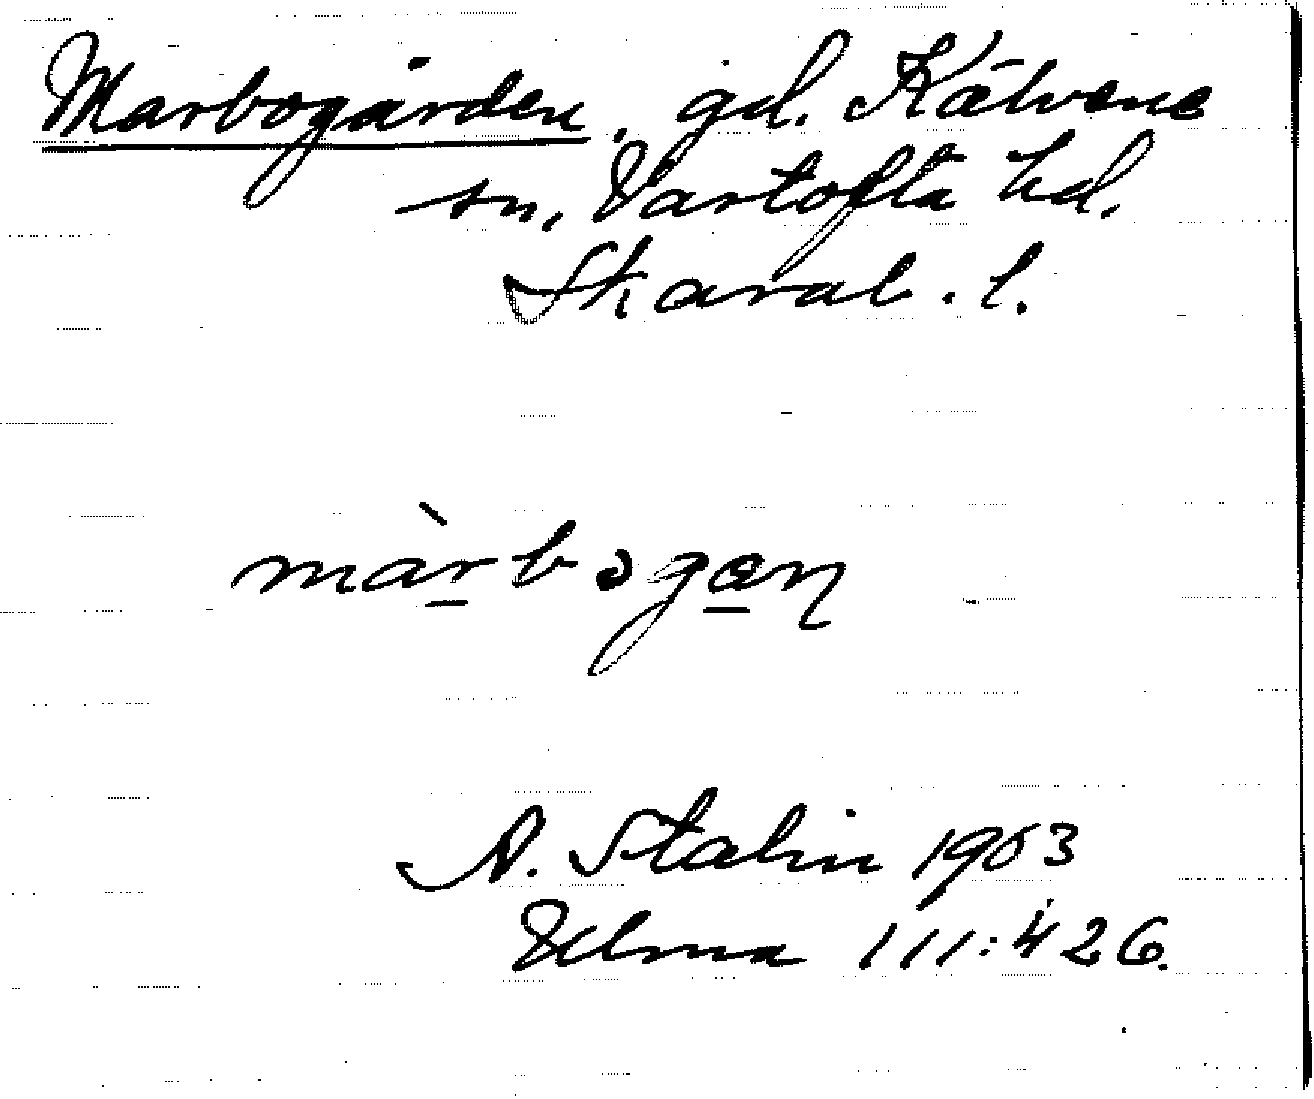 Marbogården, gd. Kälvene
sn, Vartofta hd.
Skarab. l.
màrbogæn
A. Stalin 1903
Ulma 111:426.